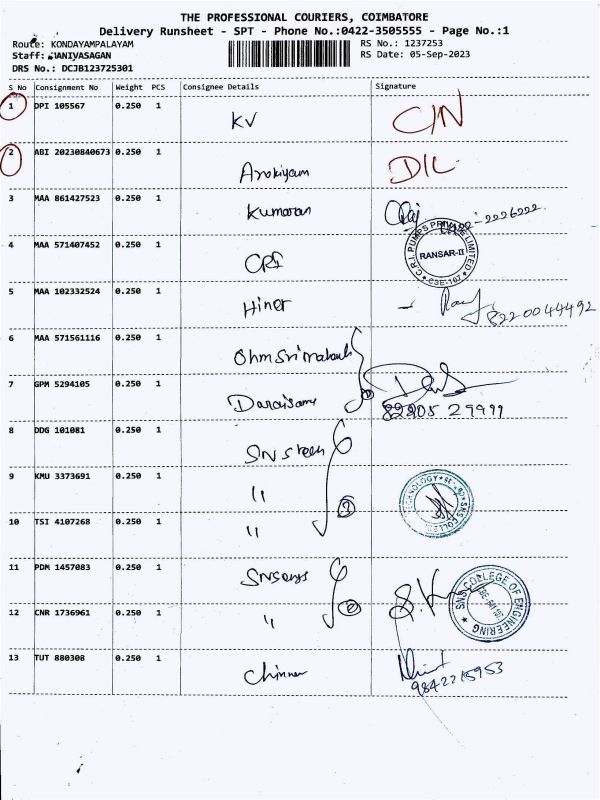 THE PROFESSIONAL COURIERS, COIMBATORE
Delivery Runsheet - SPT - Phone No.:0422-3505555 - Page No.:1
Route: KONDAYAMPALAYAM
RS No.: 1237253
Staff: MANIVASAGAN
RS Date: 05-Sep-2023
DRS No.: DCJB123725301
S No Consignment No Weight PCS Consignee Details Signature
1 DPI 105567 0.250 1 KV C/N
2 ABI 20230840673 0.250 1 Arokiyam D/L
3 MAA 861427523 0.250 1 Kumaran 2226222
4 MAA 571407452 0.250 1 CRI C.R.I. PUMPS PRIVATE LIMITED RANSAR-II CBE-107
5 MAA 102332524 0.250 1 Hiner 8220044492
6 MAA 571561116 0.250 1
7 GPM 5294105 0.250 1 Daraisamy 82205 29991
8 DDG 101081 0.250 1 SNS
9 KMU 3373691 0.250 1 "
10 TSI 4107268 0.250 1 " TECHNOLOGY
11 PDM 1457083 0.250 1
12 CNR 1736961 0.250 1 " SNS COLLEGE OF ENGINEERING
13 TUT 880308 0.250 1 9842215953
Staff :